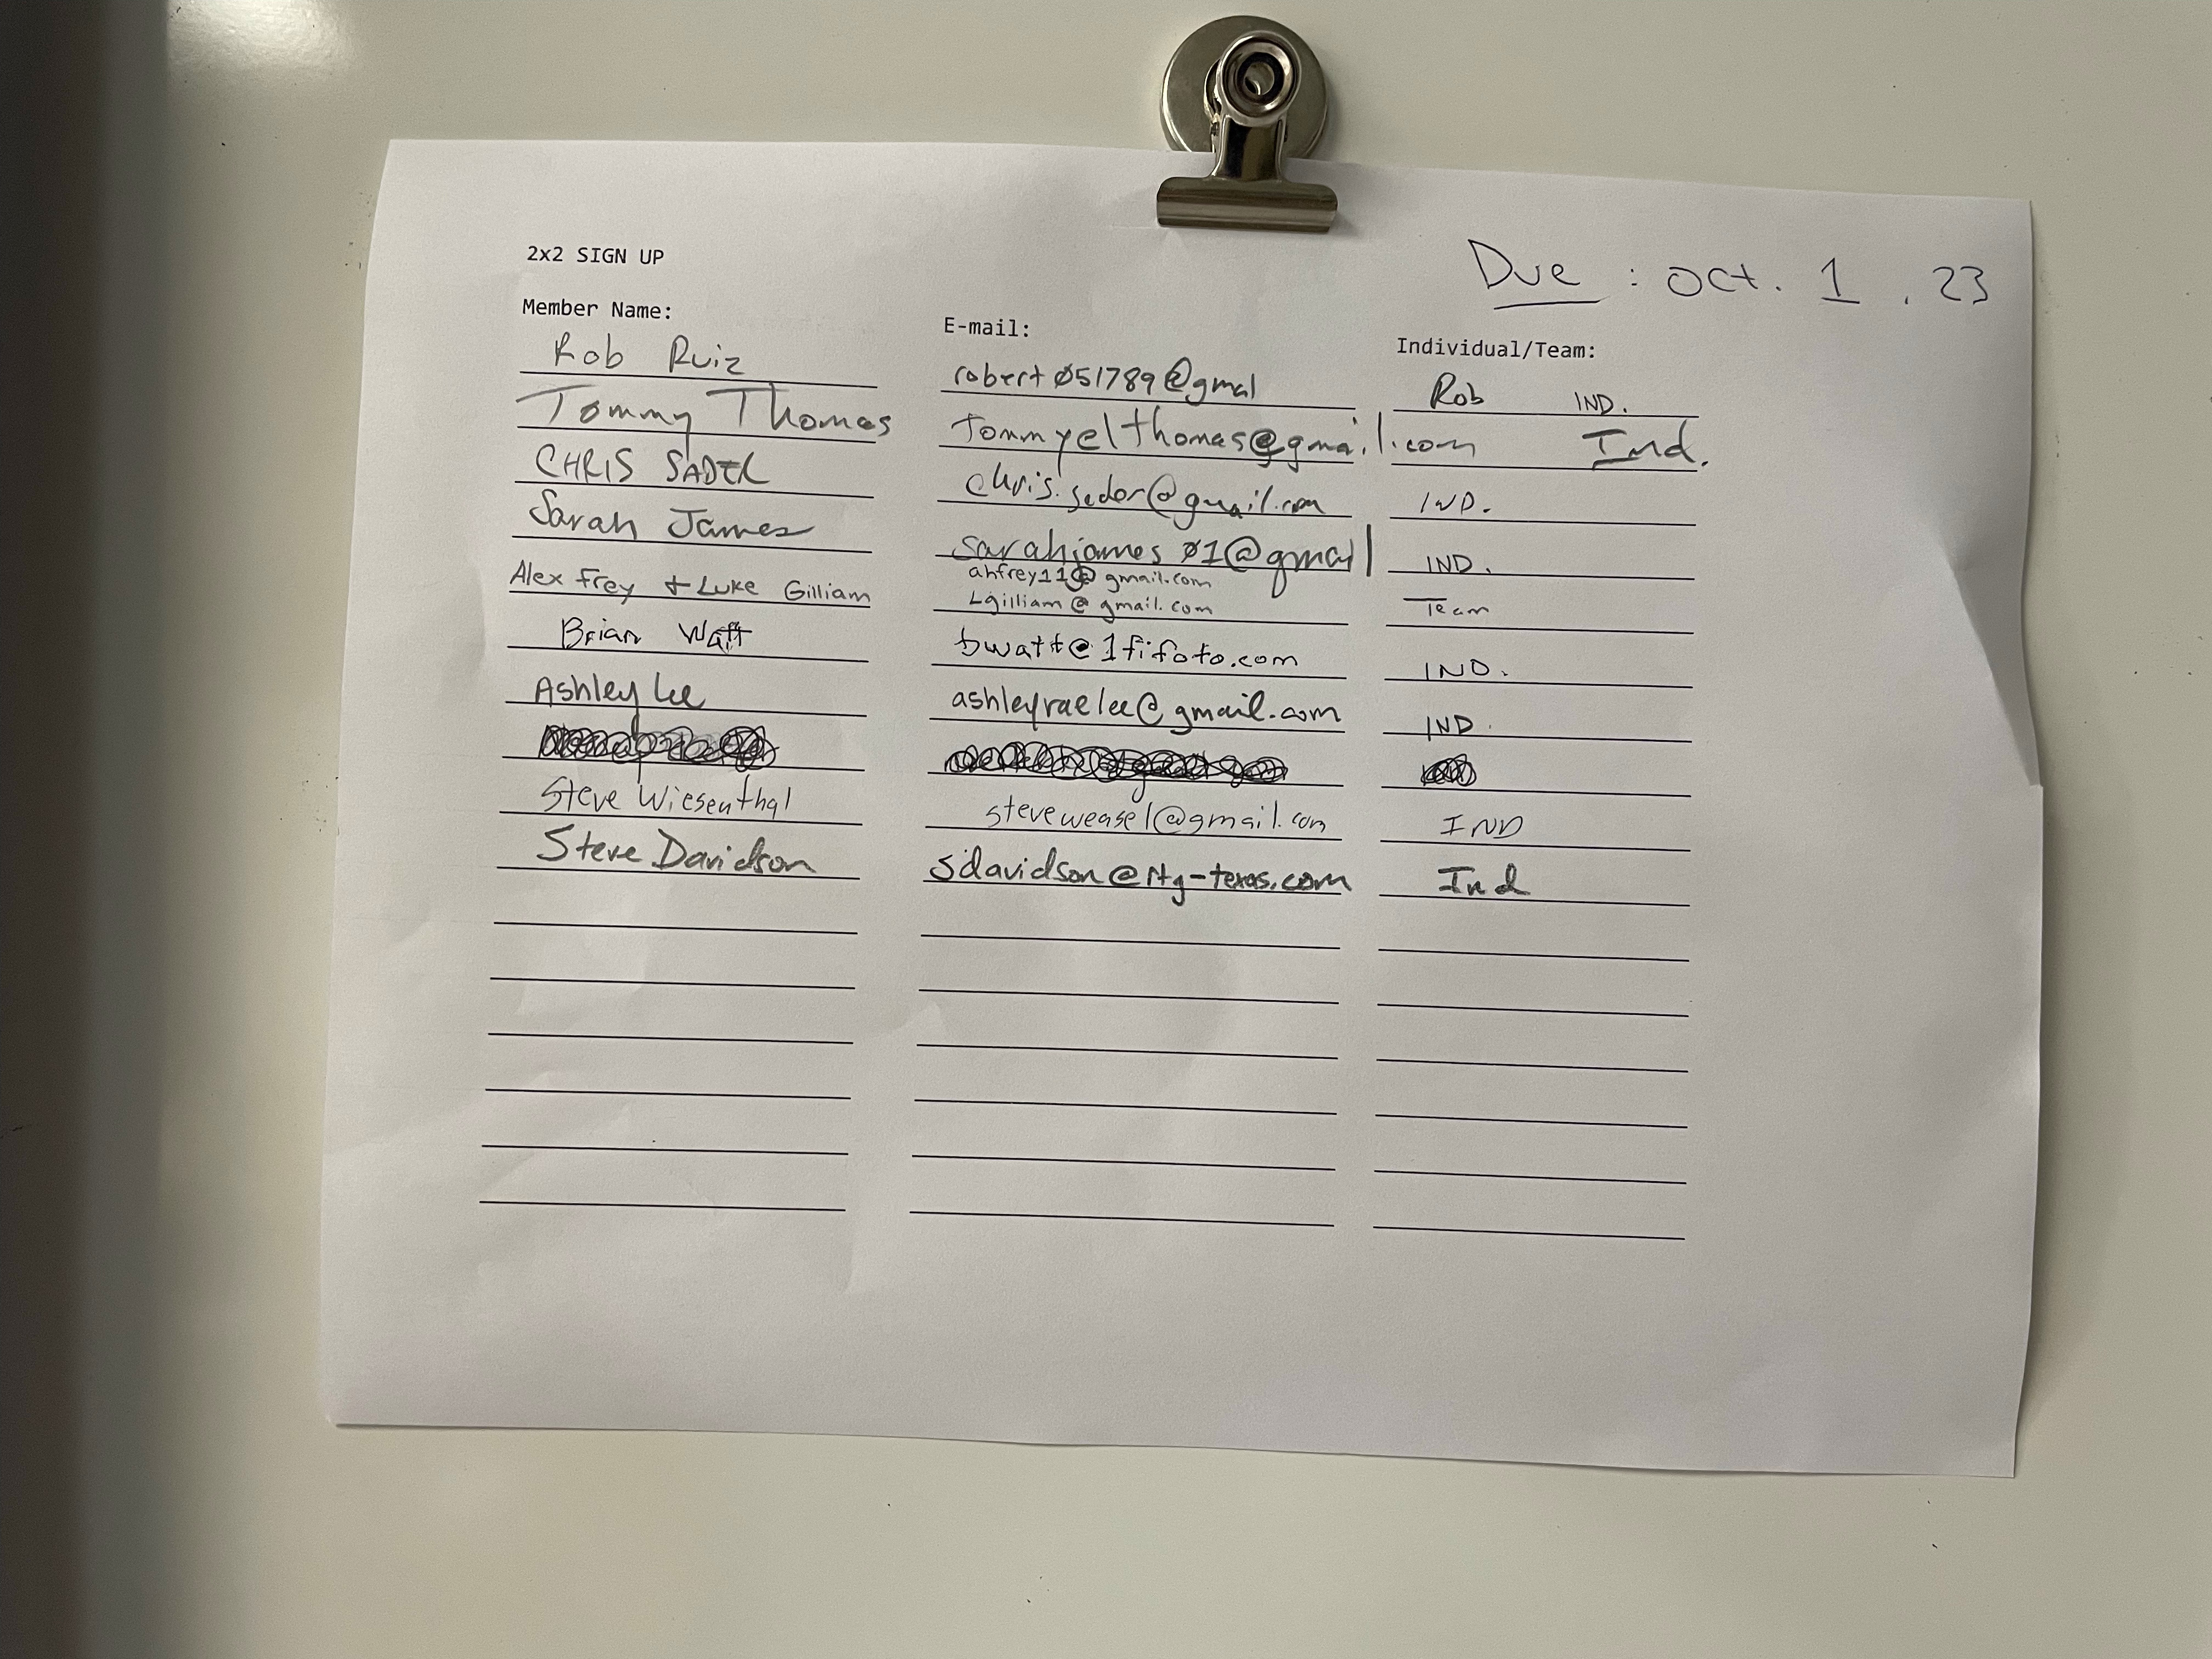 2x2 SIGN UP
Due : Oct. 1 . 23
Member Name: E-mail: Individual/Team:
Rob Ruiz robert051789@gmal Rob IND.
Tommy Thomas Tommyelthomas@gmail.com Ind.
CHRIS SADER chris.sader@gmail.com IND.
Sarah James sarahjames01@gmail IND.
ahfrey11@gmail.com
Alex Frey + Luke Gilliam Lgilliam@gmail.com Team
Brian Watt bwatt@1fifoto.com IND.
Ashley Lee ashleyraelee@gmail.com IND.
Steve Wiesenthal steveweasel@gmail.com IND
Steve Davidson Ind